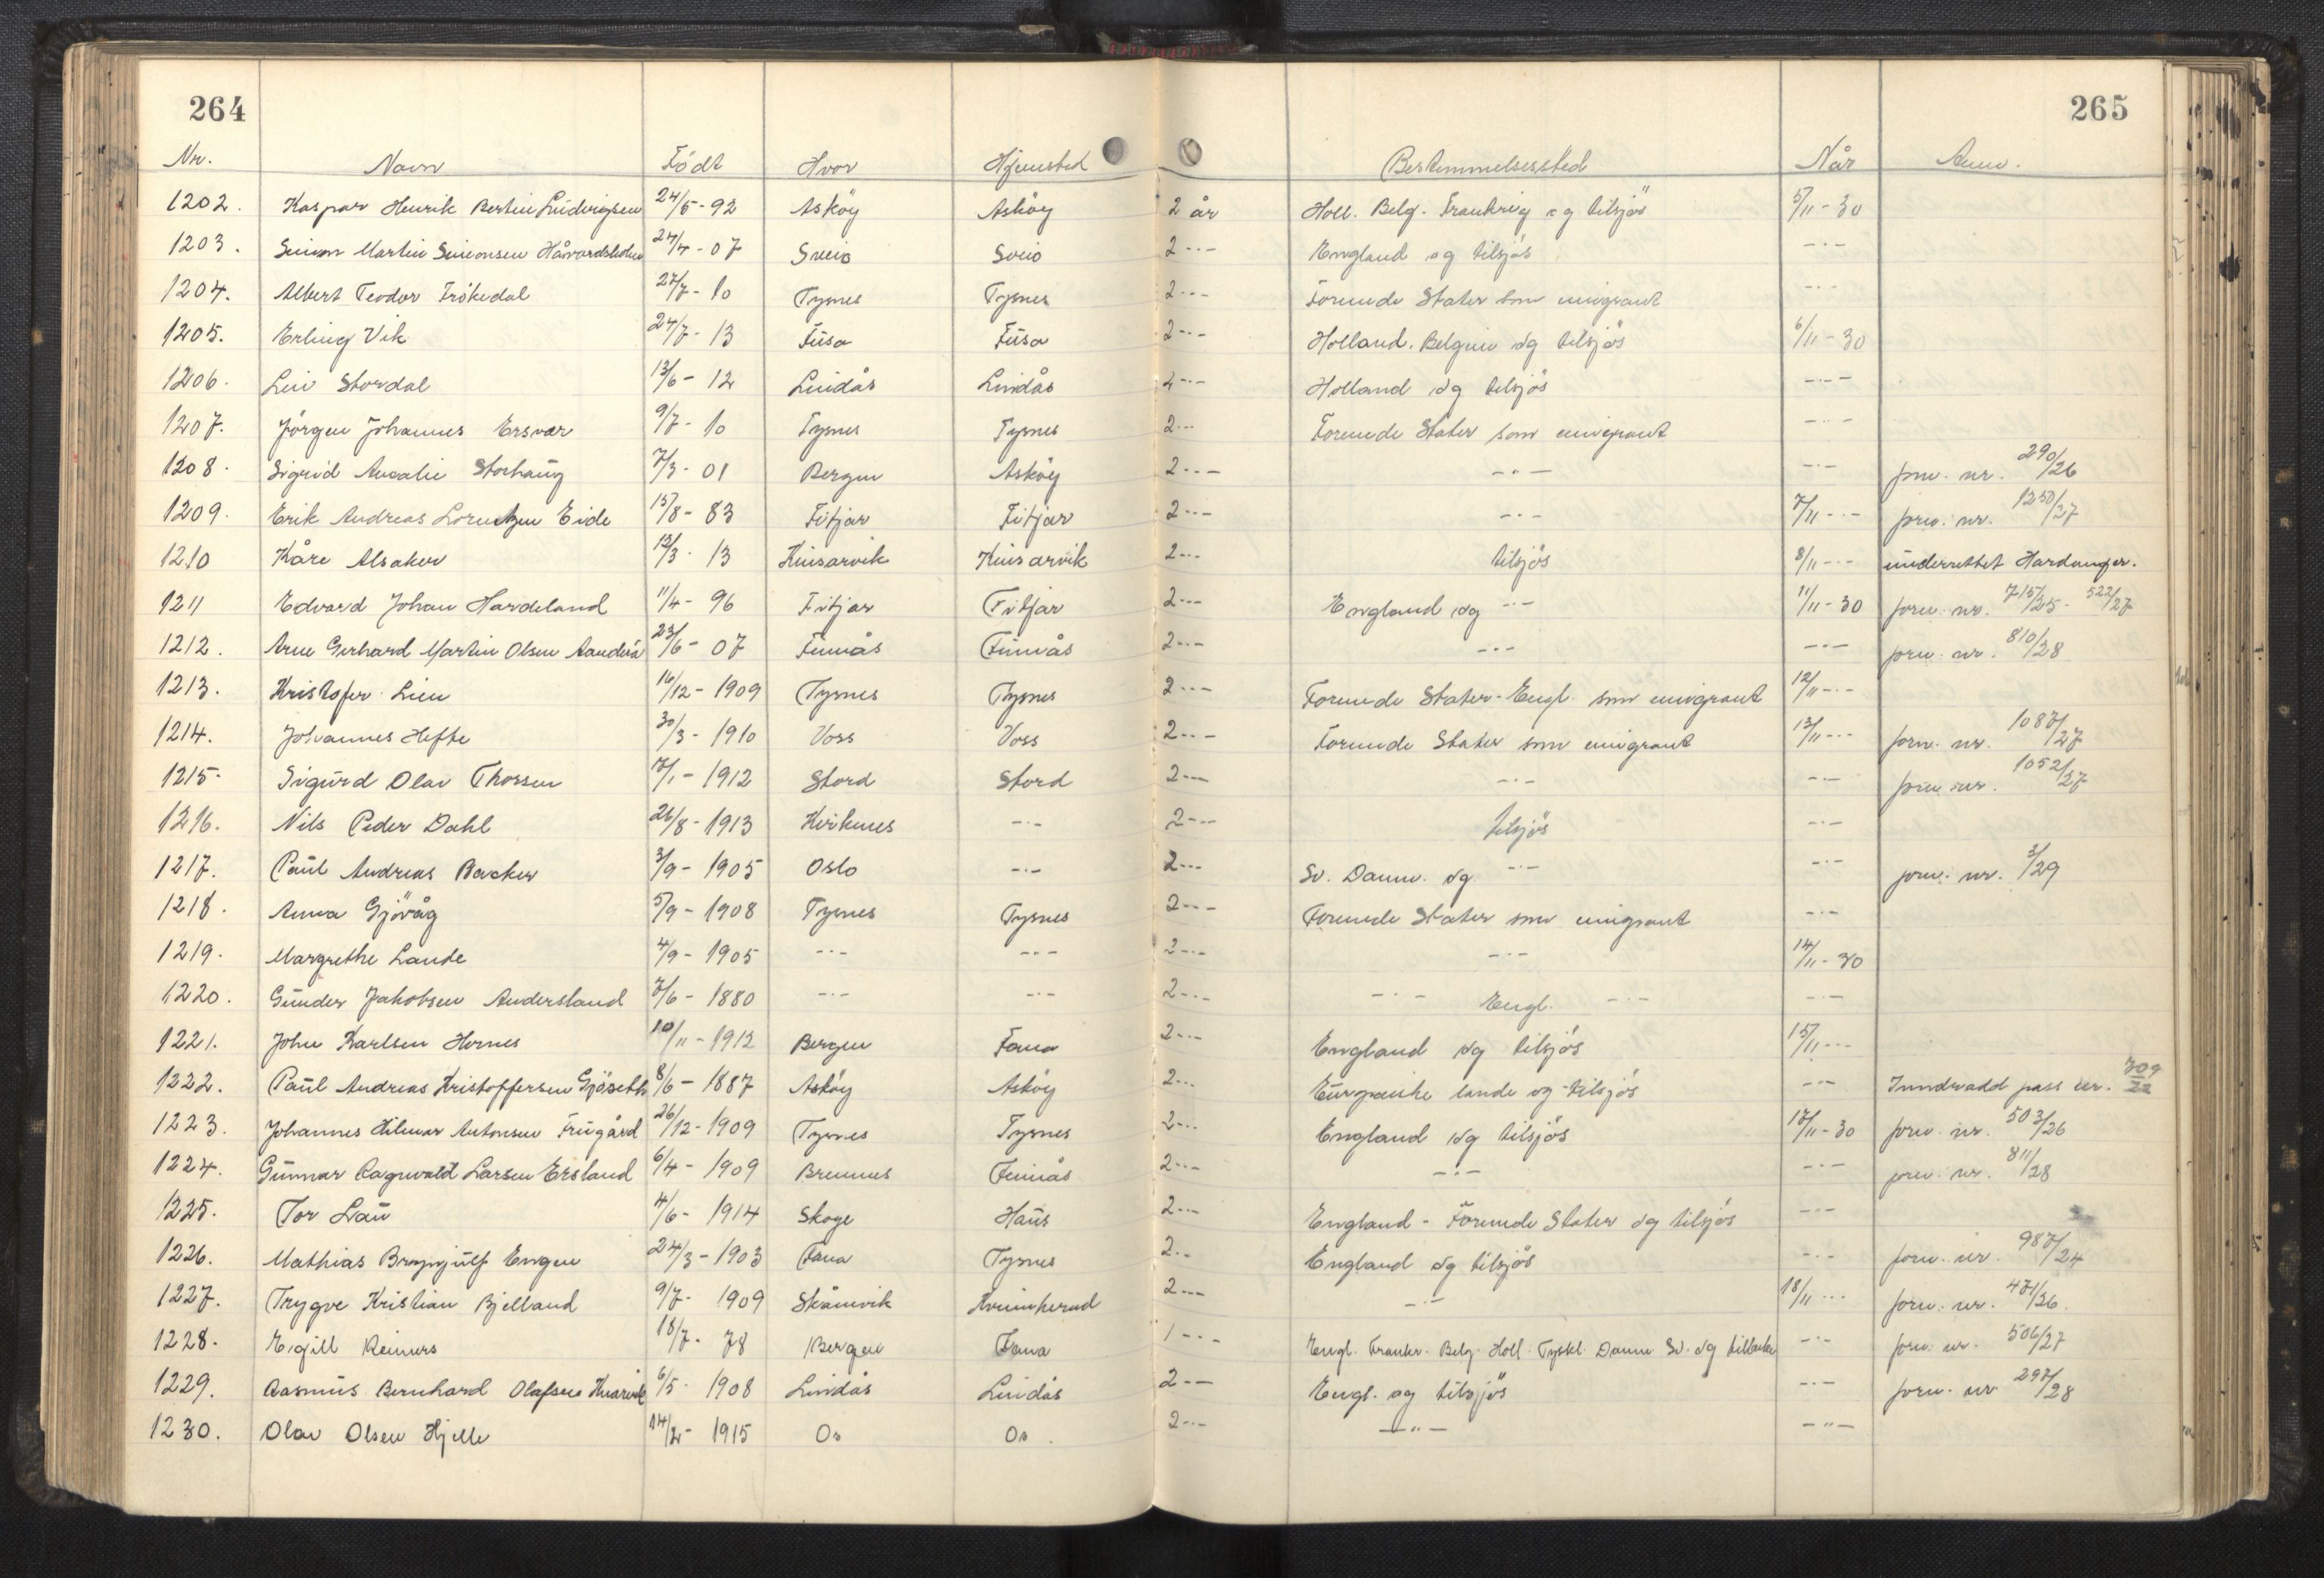 264
265
Nr. Navn Födt Hvor Hjemsted Bestemmelsessted Når Anm.
1202. Kaspar Henrik Bertin Ludvigsen 24/5-92 Asköy Asköy 2 år Holl. Belg. Frankrig og tilsjös 5/11-30
1203. Simon Martin Simonsen 24/4-07 Sveio Sveio 2 -"- England og tilsjös -"-
1204. Albert Teodor Frökedal 27/7-10 Tysnes Tysnes 2 -"- Forende Stater som emigrant -"-
1205. Erling Vik 24/7-13 Fusa Fusa 2 -"- Holland. Belgien og tilsjös 6/11-30
1206. Leiv Stordal 13/6-12 Lindås Lindås 2 -"- Holland og tilsjös -"-
1207. Jörgen Johannes Ersvær 9/7-10 Tysnes Tysnes 2 -"- Forende Stater som emigrant -"-
1208. Sigrid Amalie Storhaug 7/3-01 Bergen Asköy 2 -"- -"- -"- forn. nr. 290/26
1209. Erik Andreas Lorentzen Eide 15/8-83 Fitjar Fitjar 2 -"- -"- 7/11 -"- forn. nr. 1250/27
1210 Kåre Alsaker 12/3-13 Kinsarvik Kinsarvik 2 -"- tilsjös 8/11 -"- underrettet Hardanger.
1211 Edvard Johan Hardeland 11/4-96 Fitjar Fitjar 2 -"- England og -"- 11/11-30 forn. nr. 715/25 - 522/27
1212. Arne Gerhard Martin Olsen 23/6-07 Finnås Finnås 2 -"- -"- -"- forn. nr. 810/28
1213. Kristofer Lien 16/12-1909 Tysnes Tysnes 2 -"- Forende Stater-Engl. som emigrant 12/11 -"-
1214. Johannes Hefte 30/3-1910 Voss Voss 2 -"- Forende Stater som emigrant 13/11 -"- forn. nr. 1087/27
1215 Sigurd Olav Thorsen 7/1-1912 Stord Stord 2 -"- -"- -"- forn. nr. 1052/27
1216. Nils Peder Dahl 26/8-1913 Kirkenes -"- 2 -"- tilsjös -"-
1217. Paul Andreas Backer 3/9-1905 Oslo -"- 2 -"- Sv. Danm. og -"- -"- forn. nr. 3/29
1218. Anna Gjövåg 5/9-1908 Tysnes Tysnes 2 -"- Forende Stater som emigrant -"-
1219. Margrethe Lande 4/9-1905 -"- -"- 2 -"- -"- 14/11-30
1220. Gunder Jakobsen Andersland 7/6-1880 -"- -"- 2 -"- -"- Engl. -"- -"-
1221. John Karlsen Hornes 10/11-1912 Bergen Fana 2 -"- England og tilsjös 15/11 -"-
1222. Paul Andreas Kristoffersen Gjöseth 8/6-1887 Asköy Asköy 2 -"- Europæiske lande og tilsjös -"- Inndradd pass nr. 309/22
1223. Johannes Hilmar Antonsen Frugård 26/12-1909 Tysnes Tysnes 2 -"- England og tilsjös 17/11-30 forn. nr. 503/26
1224. Gunnar Ragnvald Larsen Ersland 6/4-1909 Bremnes Finnås 2 -"- -"- -"- forn. nr. 811/28
1225. Tor Lau 4/6-1914 Skoge Haus 2 -"- England - Forende Stater og tilsjös -"-
1226. Mathias Brynjulf Engen 24/3-1903 Fana Tysnes 2 -"- England og tilsjös -"- forn. nr. 987/24
1227. Trygve Kristian Bjelland 9/7-1909 Skånevik Kvinnherad 2 -"- -"- 18/11 -"- forn. nr. 471/26
1228. Egill Reimers 18/7-78 Bergen Fana 1 -"- Engl. Frankr. Belg. Holl. Tyskl. Danm. Sv. og tilbake -"- forn. nr. 506/27
1229. Rasmus Bernhard Olafsen Kvarvik 6/5-1908 Lindås Lindås 2 -"- Engl. og tilsjös -"- forn. nr. 297/28
1230. Olav Olsen Hjelle 14/2-1915 Os Os. 2 -"- -"- -"-